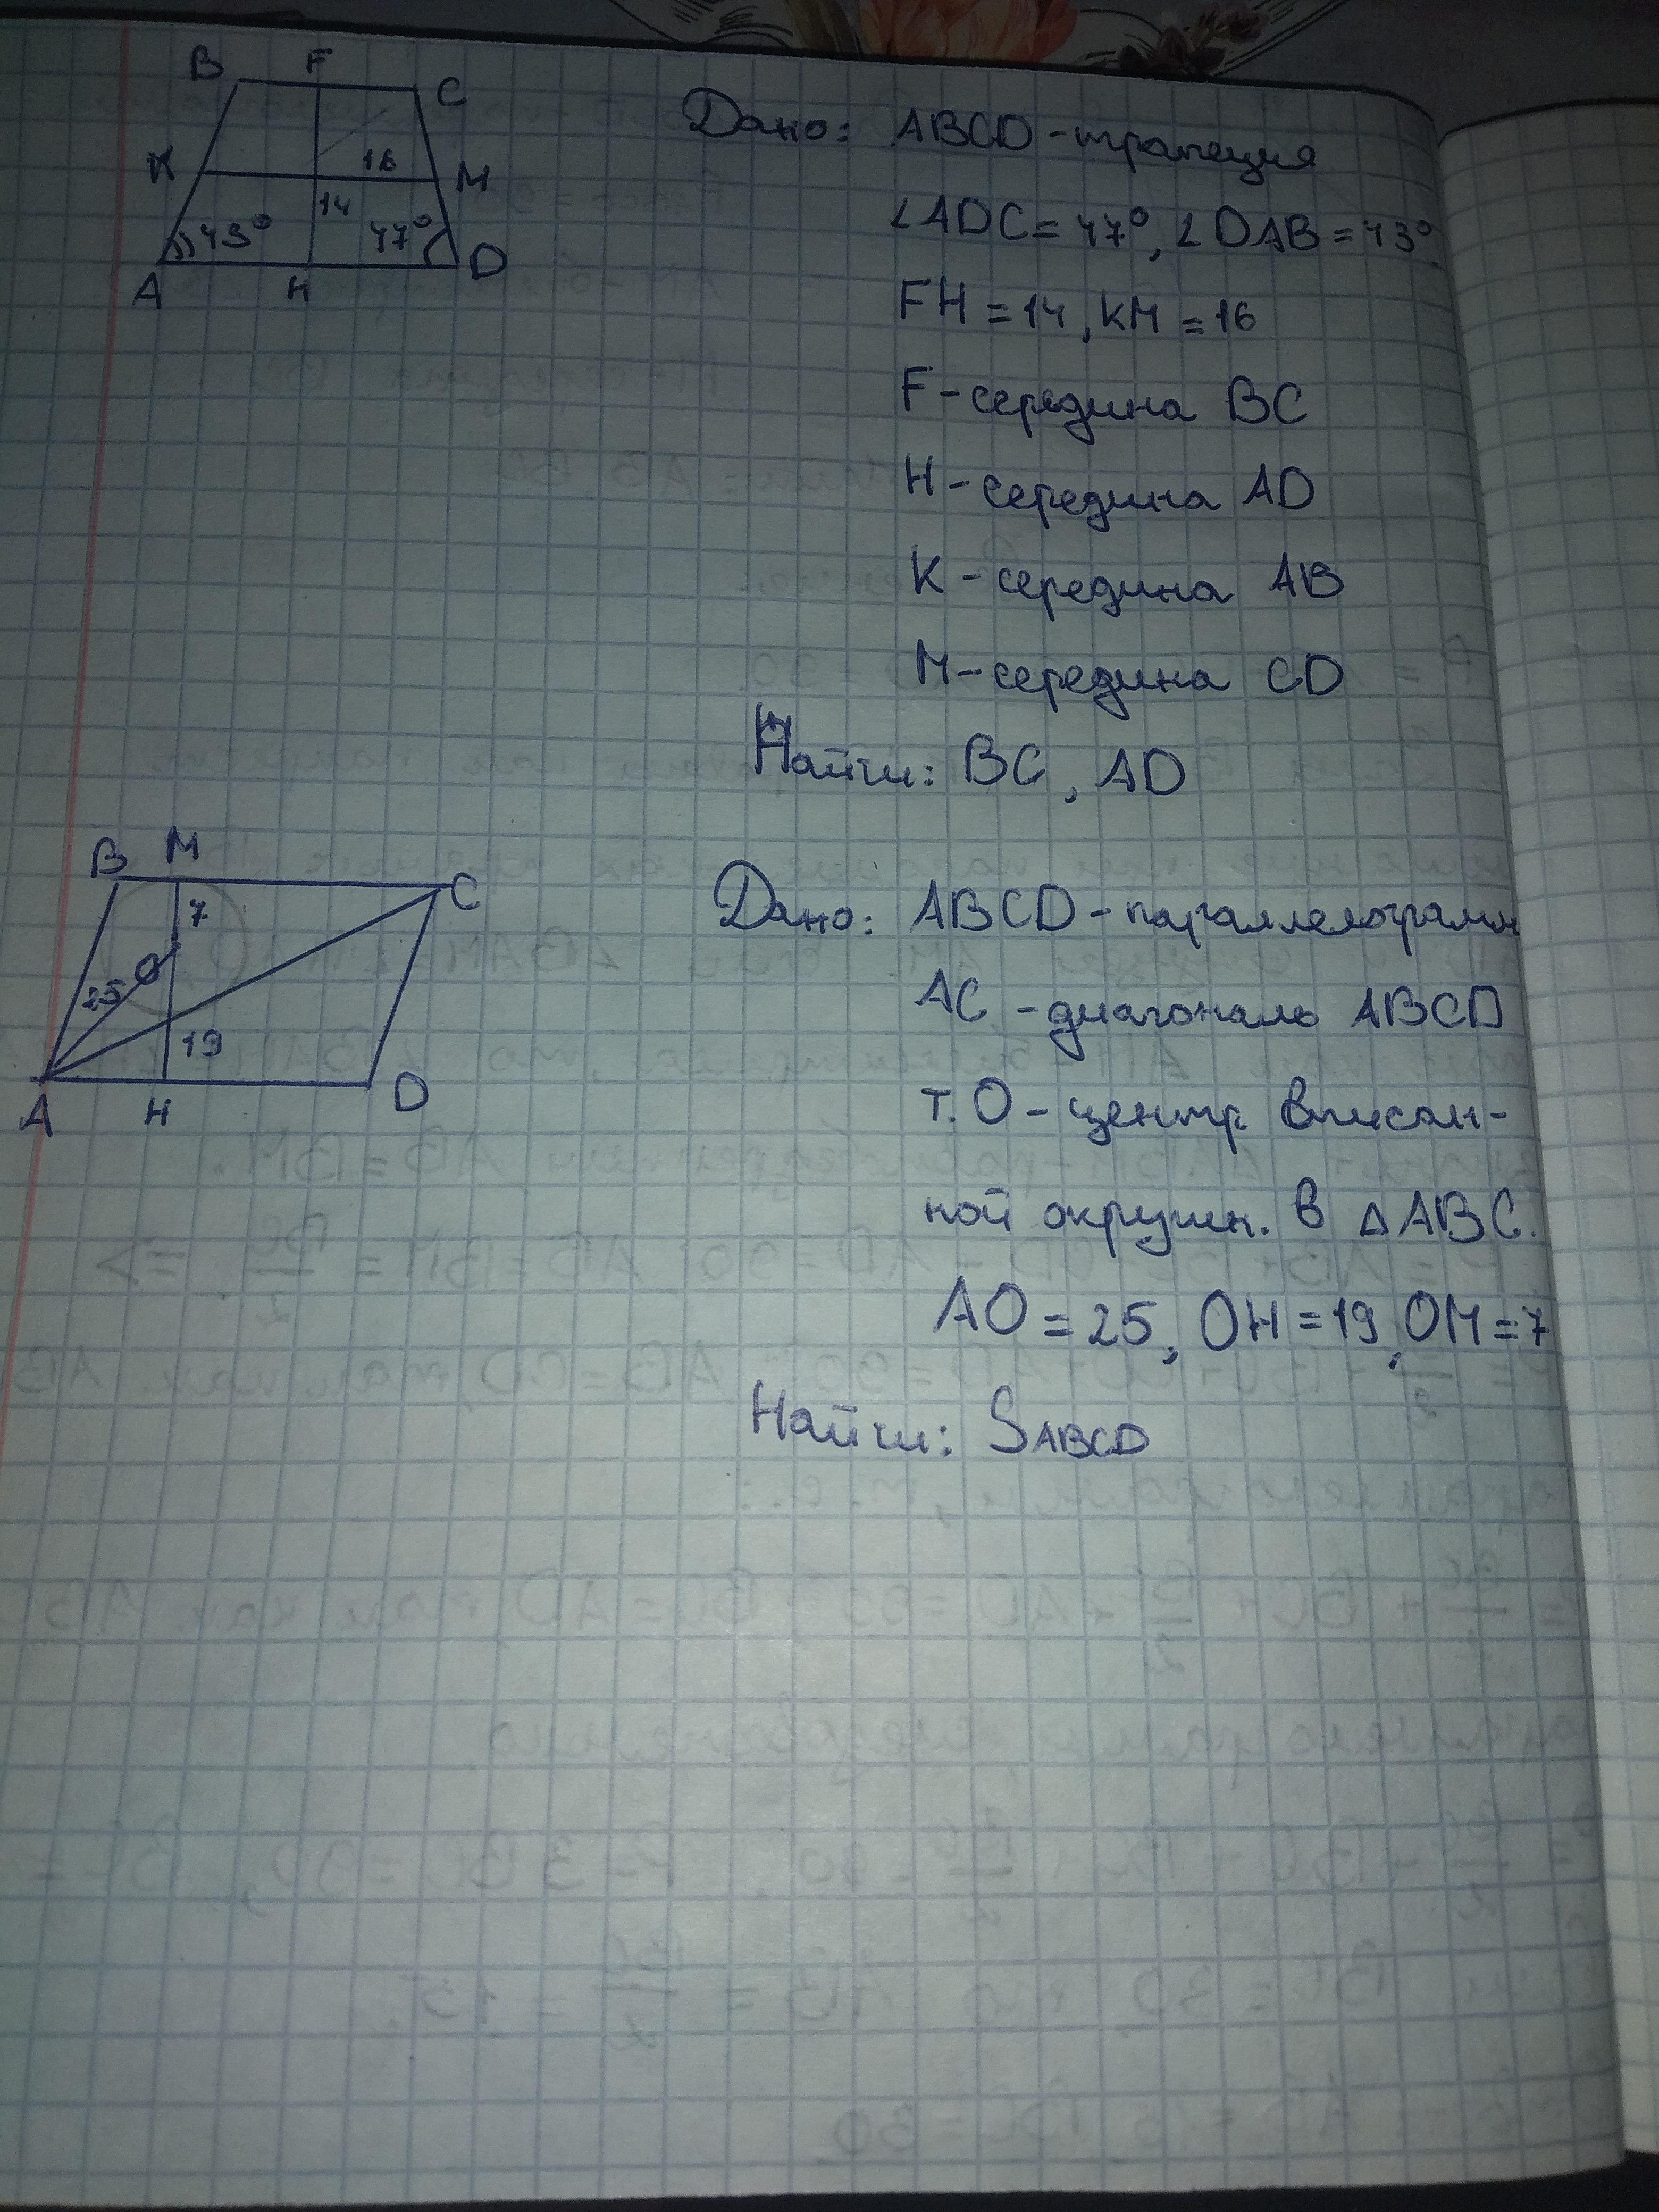 B F C
Дано: ABCD - трапеция
K 16 M
∠ADC = 47°, ∠DAB = 43°
14
43° 47°
A H D
FH = 14, KM = 16
F - середина BC
H - середина AD
K - середина AB
M - середина CD
Найти: BC, AD
B M C
7
Дано: ABCD - параллелограмм
25 O
AC - диагональ ABCD
19
A H D
т. O - центр вписан-
ной окружн. в △ABC.
AO = 25, OH = 19, OM = 7
Найти: SABCD